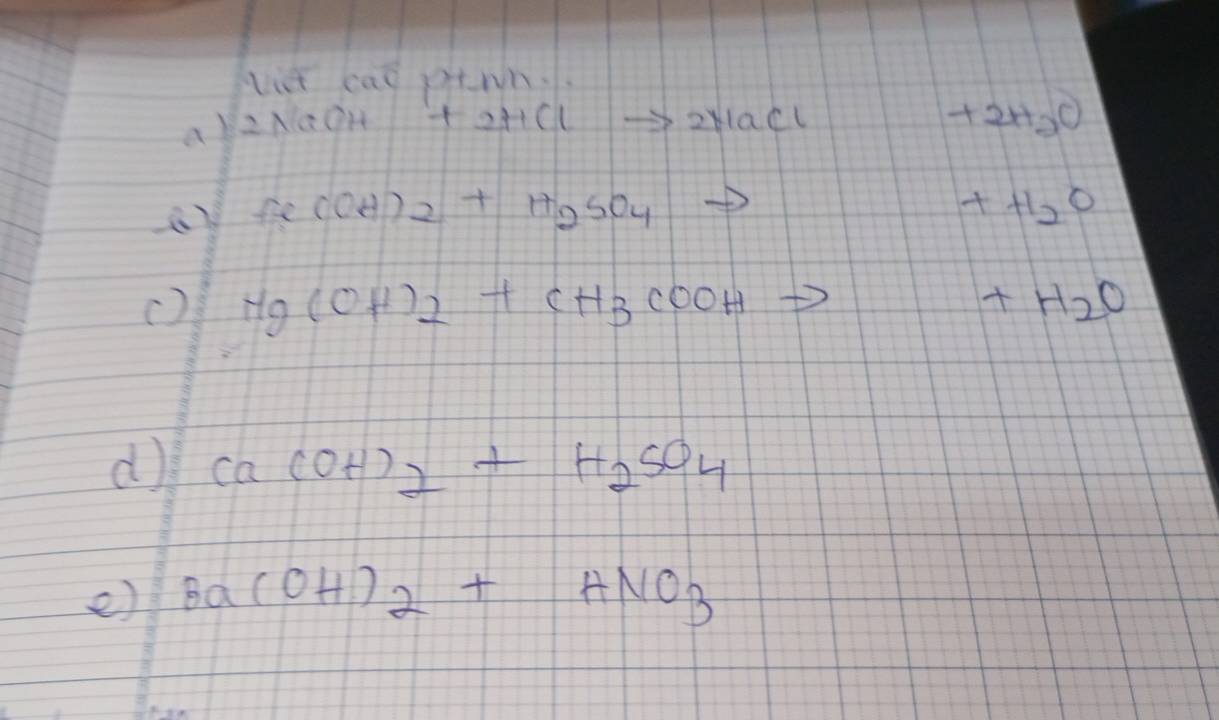 Viết các ptnn..
a) 2NaOH + 2HCl → 2NaCl + 2H2O
b) Fe(OH)2 + H2SO4 → + H2O
c) Hg(OH)2 + CH3COOH → + H2O
d) Ca(OH)2 + H2SO4
e) Ba(OH)2 + HNO3